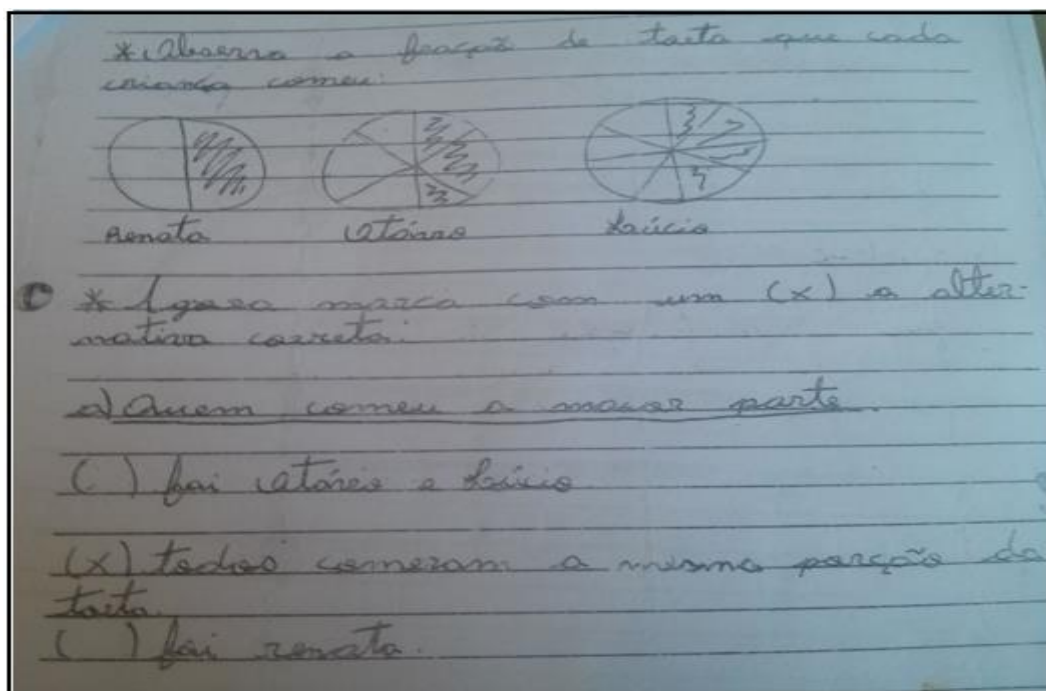 * Observa a fração de torta que cada
criança comeu:
Renata Otávio Lúcio
* Agora marca com um (x) a alter-
nativa correta:
a) Quem comeu a maior parte.
( ) foi Otávio e Lúcio
(x) todos comeram a mesma porção da
torta.
( ) foi renata.